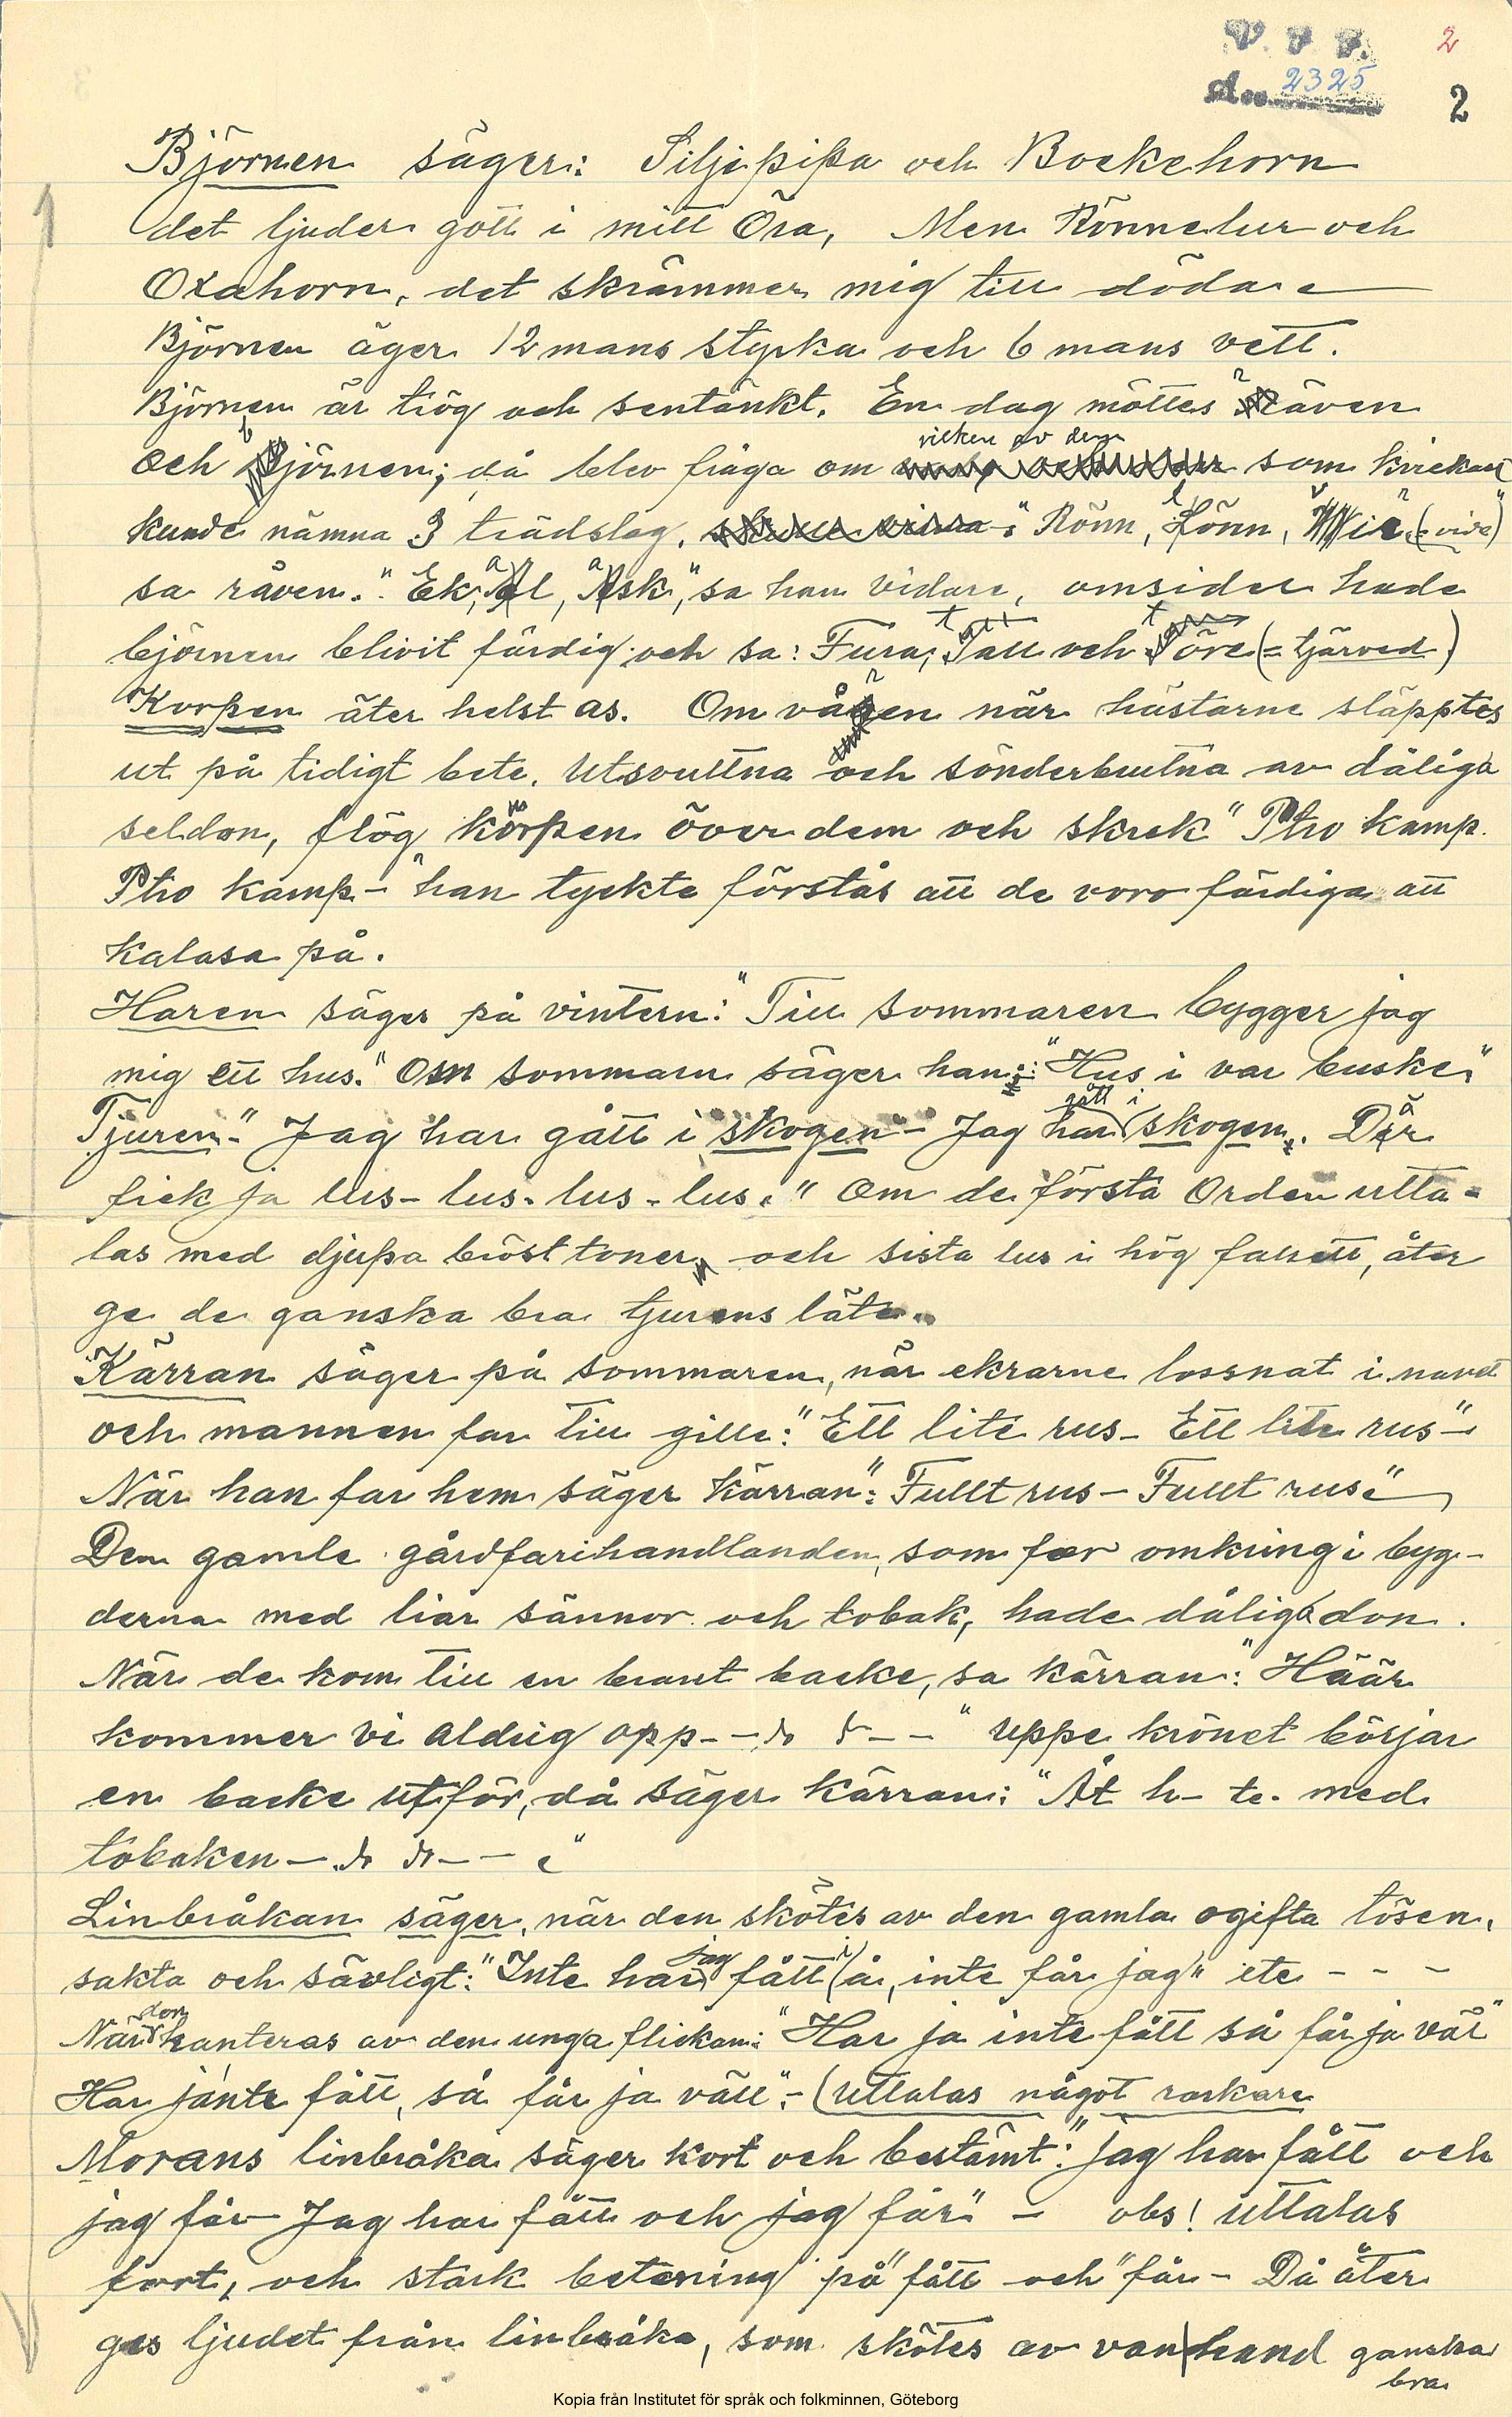 V. F. F.
2
Acc. 2325
2
Björnen säger: Siljepipa och Bockehorn
det ljuder gott i mitt Öra, Men Rönnelur och
Oxahorn, det skrämmer mig till döda.
Björnen äger 12 mans styrka och 6 mans vett.
Björnen är trög och sentänkt. En dag möttes räven
och björnen; då blev fråga om vilken av dem som kvickast
kunde nämna 3 trädslag. "Rönn, lönn, vir (= vire)"
sa räven. "Ek, al, ask," sa han vidare, omsider hade
björnen blivit färdig och sa: Fura, tall och töre (= tjärved)
Korpen äter helst as. Om våren när hästarne släpptes
ut på tidigt bete. Utsvultna och sönderbrutna av dåliga
seldon, flög korpen över dem och skrek "Ptro kamp.
Ptro kamp -" han tyckte förstås att de voro färdiga att
kalasa på.
Haren säger på vintern: "Till sommaren bygger jag
mig ett hus." Om sommarn säger han: "Hus i var buske"
Tjuren "Jag har gått i skogen - Jag har gått i skogen. Där
fick ja lus - lus - lus - lus." Om de första Orden utta-
las med djupa brösttoner, och sista lus i hög falsett, åter
ge de ganska bra tjurens läte.
Kärran säger på sommaren, när ekrarne lossnat i navet
och mannen far till gille: "Ett lite rus - Ett lite rus" -
När han far hem säger kärran: "Fullt rus - Fullt rus"
Den gamle gårdfarihandlanden, som for omkring i byg-
derna med liar sännor och tobak, hade dåliga don.
När de kom till en brant backe, sa kärran: "Häär
kommer vi aldrig opp - - do do - -" uppe krönet börjar
en backe utför, då säger kärran: "Åt h- te. med
tobaken - do do - - "
Linbråkan säger, när den skötes av den gamla ogifta tösen,
sakta och sävligt: "Inte har jag fått i å, inte får jag" etc - - -
När den hanteras av den unga flickan: "Har ja inte fått så får ja väl"
Har jante fått, så får ja väll" - (uttalas något raskare
Morans linbråka säger kort och bestämt: "Jag har fått och
jag får Jag har fått och jag får" - obs! uttalas
fort, och stark betoning på "fått och "får - Då åter
ges ljudet från linbråka, som skötes av van hand ganska
bra
Kopia från Institutet för språk och folkminnen, Göteborg